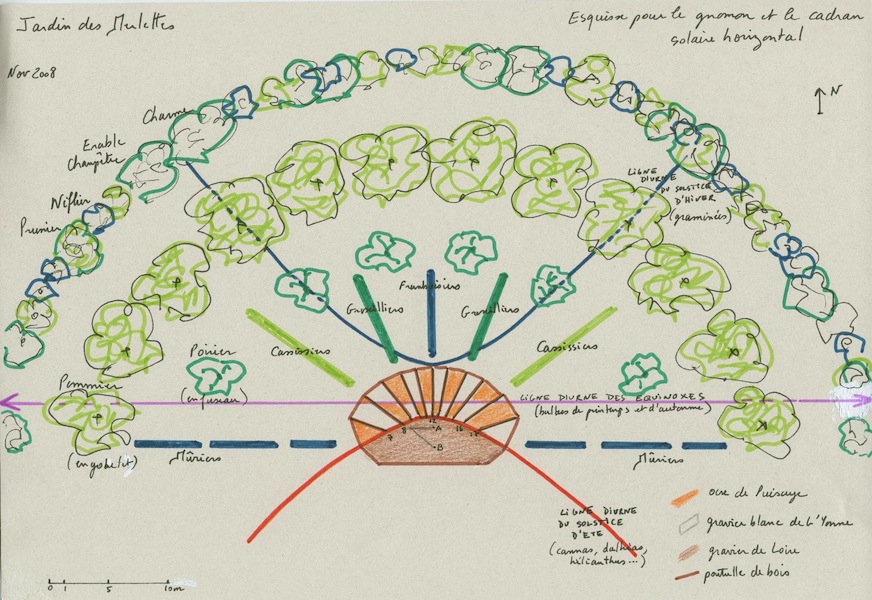 Jardin des Merlettes
Esquisse pour le gnomon et le cadran
solaire horizontal
Nov 2008
N
Charme
Erable
Champêtre
Néflier
Prunier
LIGNE DIURNE
DU SOLSTICE
D'HIVER
(graminées)
Framboisiers
Groseilliers
Groseilliers
Cassissiers
Cassissiers
Poirier
(en fuseau)
Pommier
(en gobelet)
LIGNE DIURNE DES EQUINOXES
(bulbes de printemps et d'automne)
7
8
12
A
B
16
17
Mûriers
Mûriers
LIGNE DIURNE
DU SOLSTICE
D'ETE
(cannas, dalhias,
hélianthes...)
ocre de Puisaye
gravier blanc de L'Yonne
gravier de Loire
poutrelle de bois
0 1 5 10m